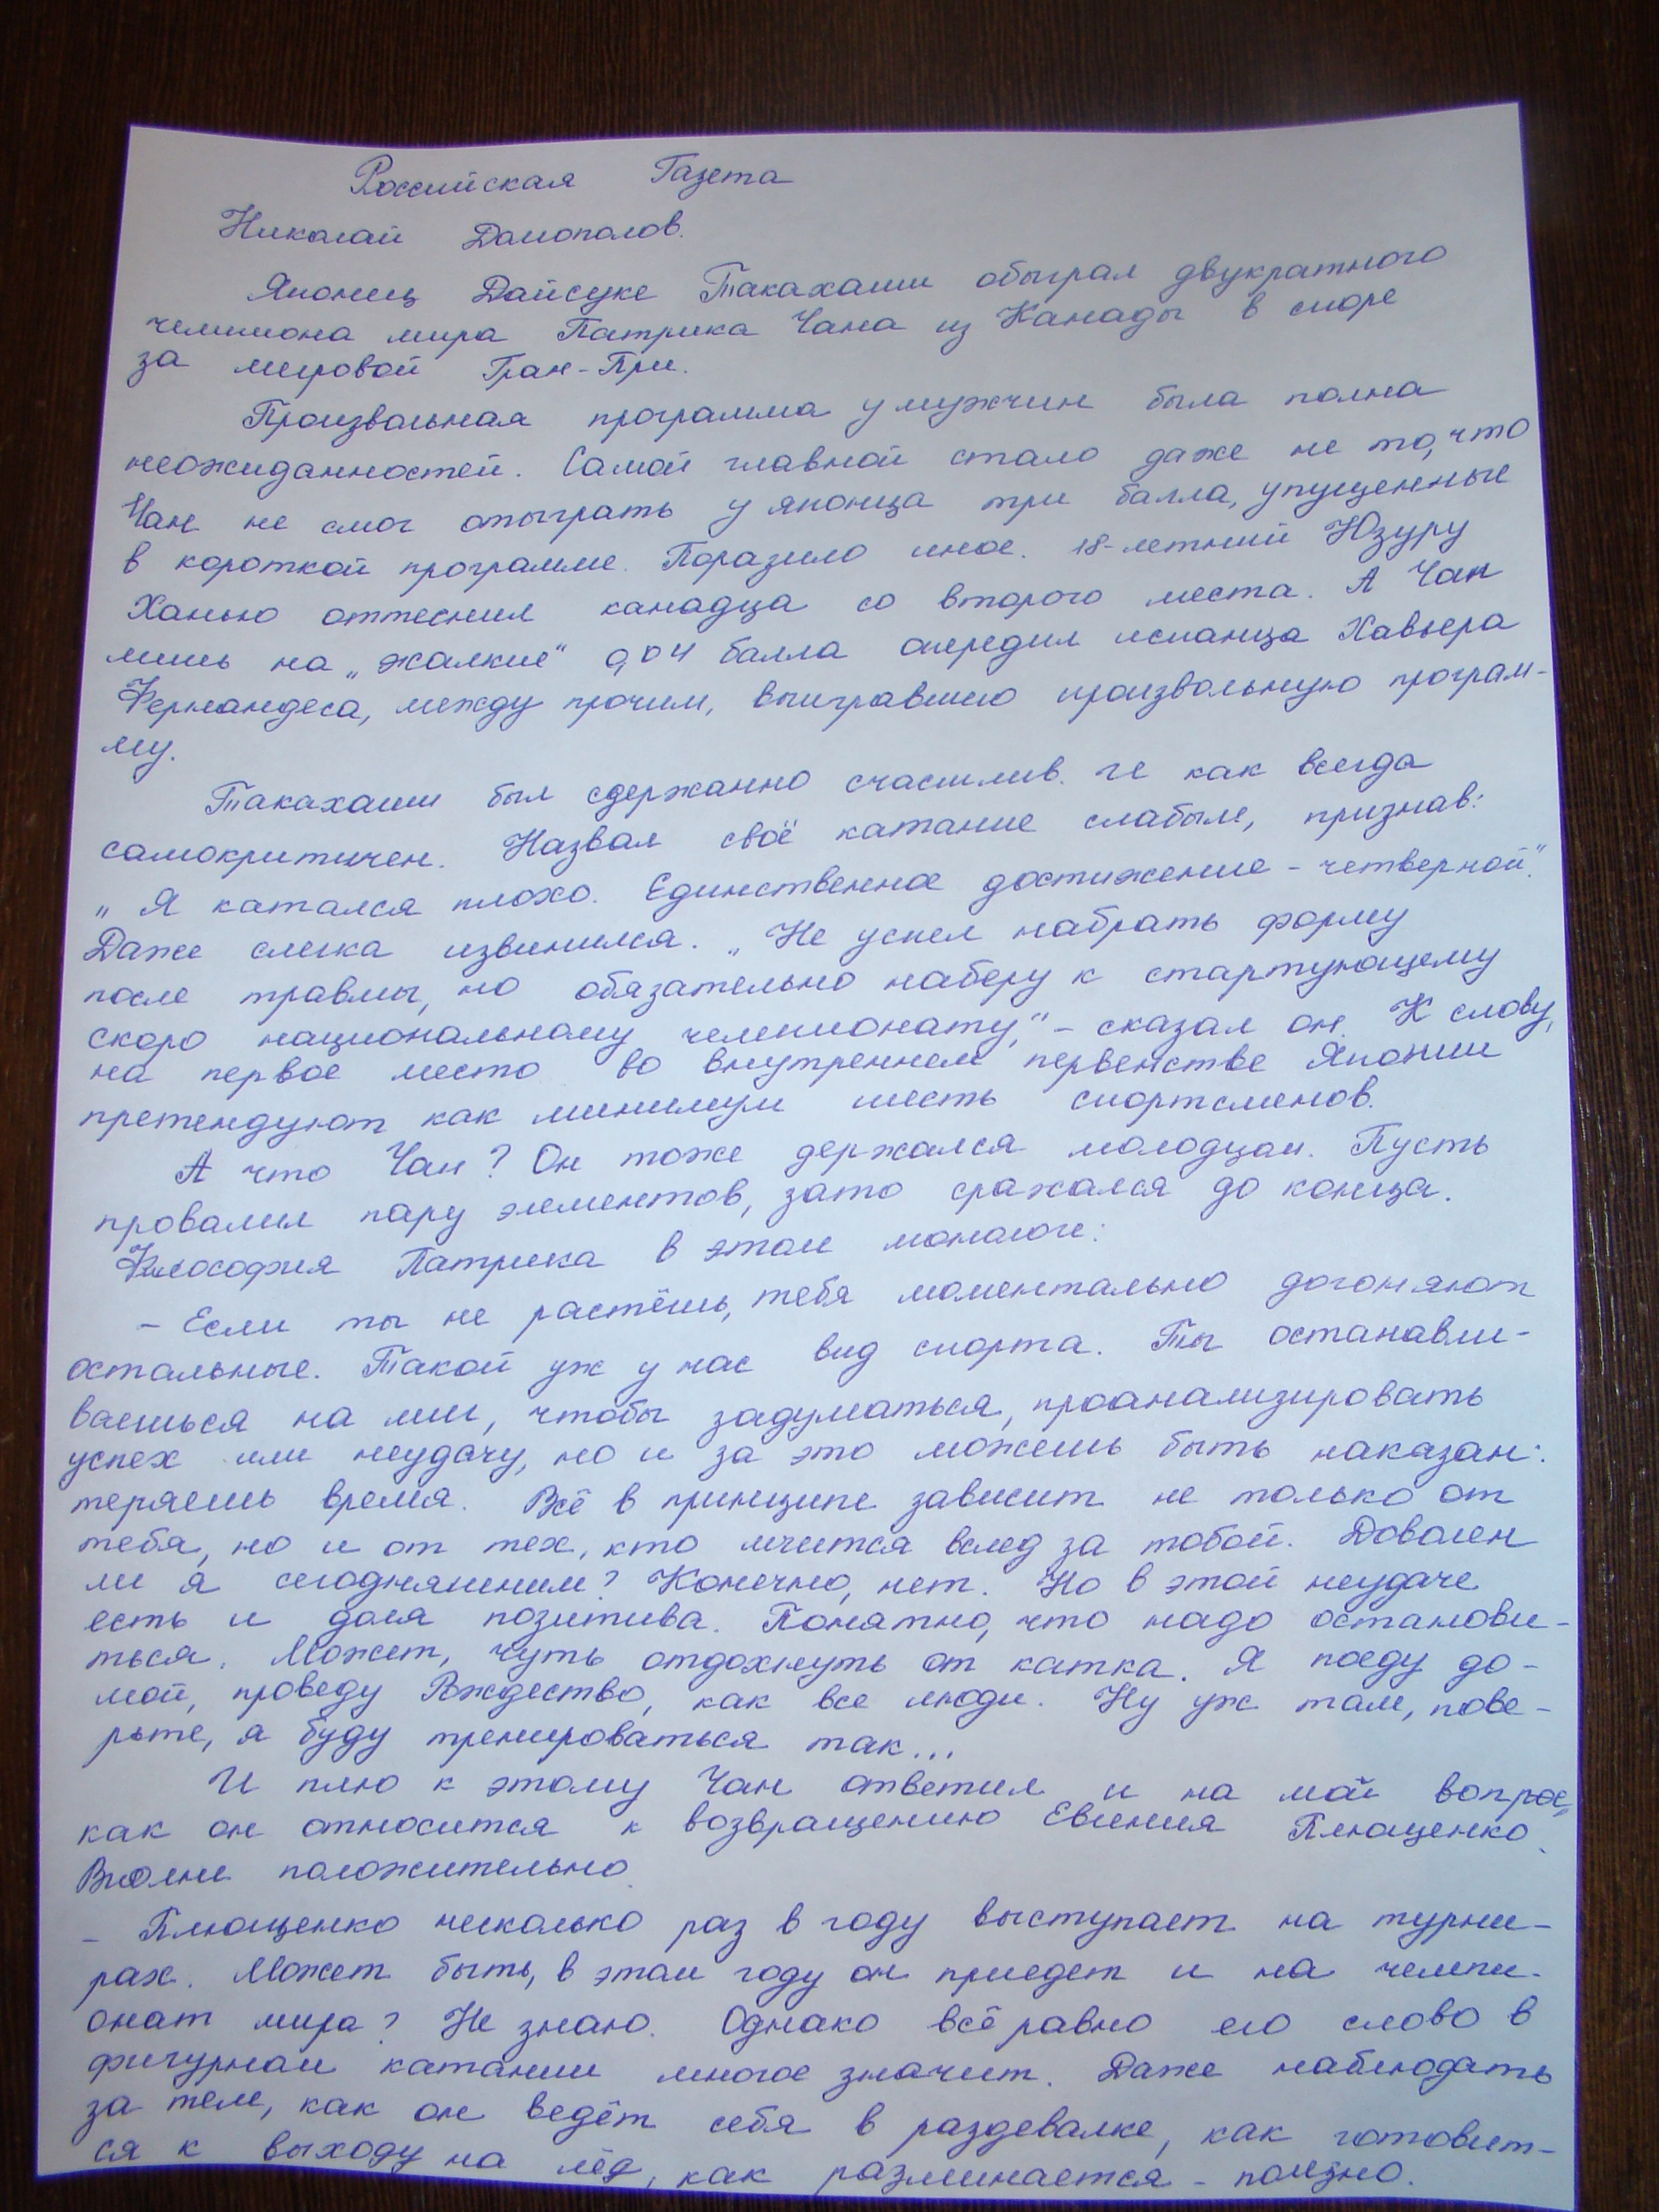 Российская Газета
Николай Долгополов.
Японец Дайсуке Такахаши обыграл двукратного
чемпиона мира Патрика Чана из Канады в споре
за мировой Гран-При.
Произвольная программа у мужчин была полна
неожиданностей. Самой главной стало даже не то, что
Чан не смог отыграть у японца три балла, упущенные
в короткой программе. Поразило иное. 18-летний Юзуру
Ханью оттеснил канадца со второго места. А Чан
лишь на „жалкие" 0,04 балла опередил испанца Хавьера
Фернандеса, между прочим, выигравшего произвольную програм-
му.
Такахаши был сдержанно счастлив. И как всегда
самокритичен. Назвал своё катание слабым, признав:
„Я катался плохо. Единственное достижение - четверной".
Даже слегка извинился. „Не успел набрать форму
после травмы, но обязательно наберу к стартующему
скоро национальному чемпионату," - сказал он. К слову,
на первое место во внутреннем первенстве Японии
претендуют как минимум шесть спортсменов.
А что Чан? Он тоже держался молодцом. Пусть
провалил пару элементов, зато сражался до конца.
Философия Патрика в этом монологе:
- Если ты не растёшь, тебя моментально догоняют
остальные. Такой уж у нас вид спорта. Ты останавли-
ваешься на миг, чтобы задуматься, проанализировать
успех или неудачу, но и за это можешь быть наказан:
теряешь время. Всё в принципе зависит не только от
тебя, но и от тех, кто мчится вслед за тобой. Доволен
ли я сегодняшним? Конечно, нет. Но в этой неудаче
есть и доля позитива. Понятно, что надо останови-
ться. Может, чуть отдохнуть от катка. Я поеду до-
мой, проведу Рждество, как все люди. Ну уж там, пове-
рьте, я буду тренироваться так...
И плюс к этому Чан ответил и на мой вопрос,
как он относится к возвращению Евгения Плющенко.
Вполне положительно.
- Плющенко несколько раз в году выступает на турни-
рах. Может быть, в этом году он приедет и на чемпи-
онат мира? Не знаю. Однако всё равно его слово в
фигурном катании многое значит. Даже наблюдать
за тем, как он ведёт себя в раздевалке, как готовит-
ся к выходу на лёд, как разминается - полезно.